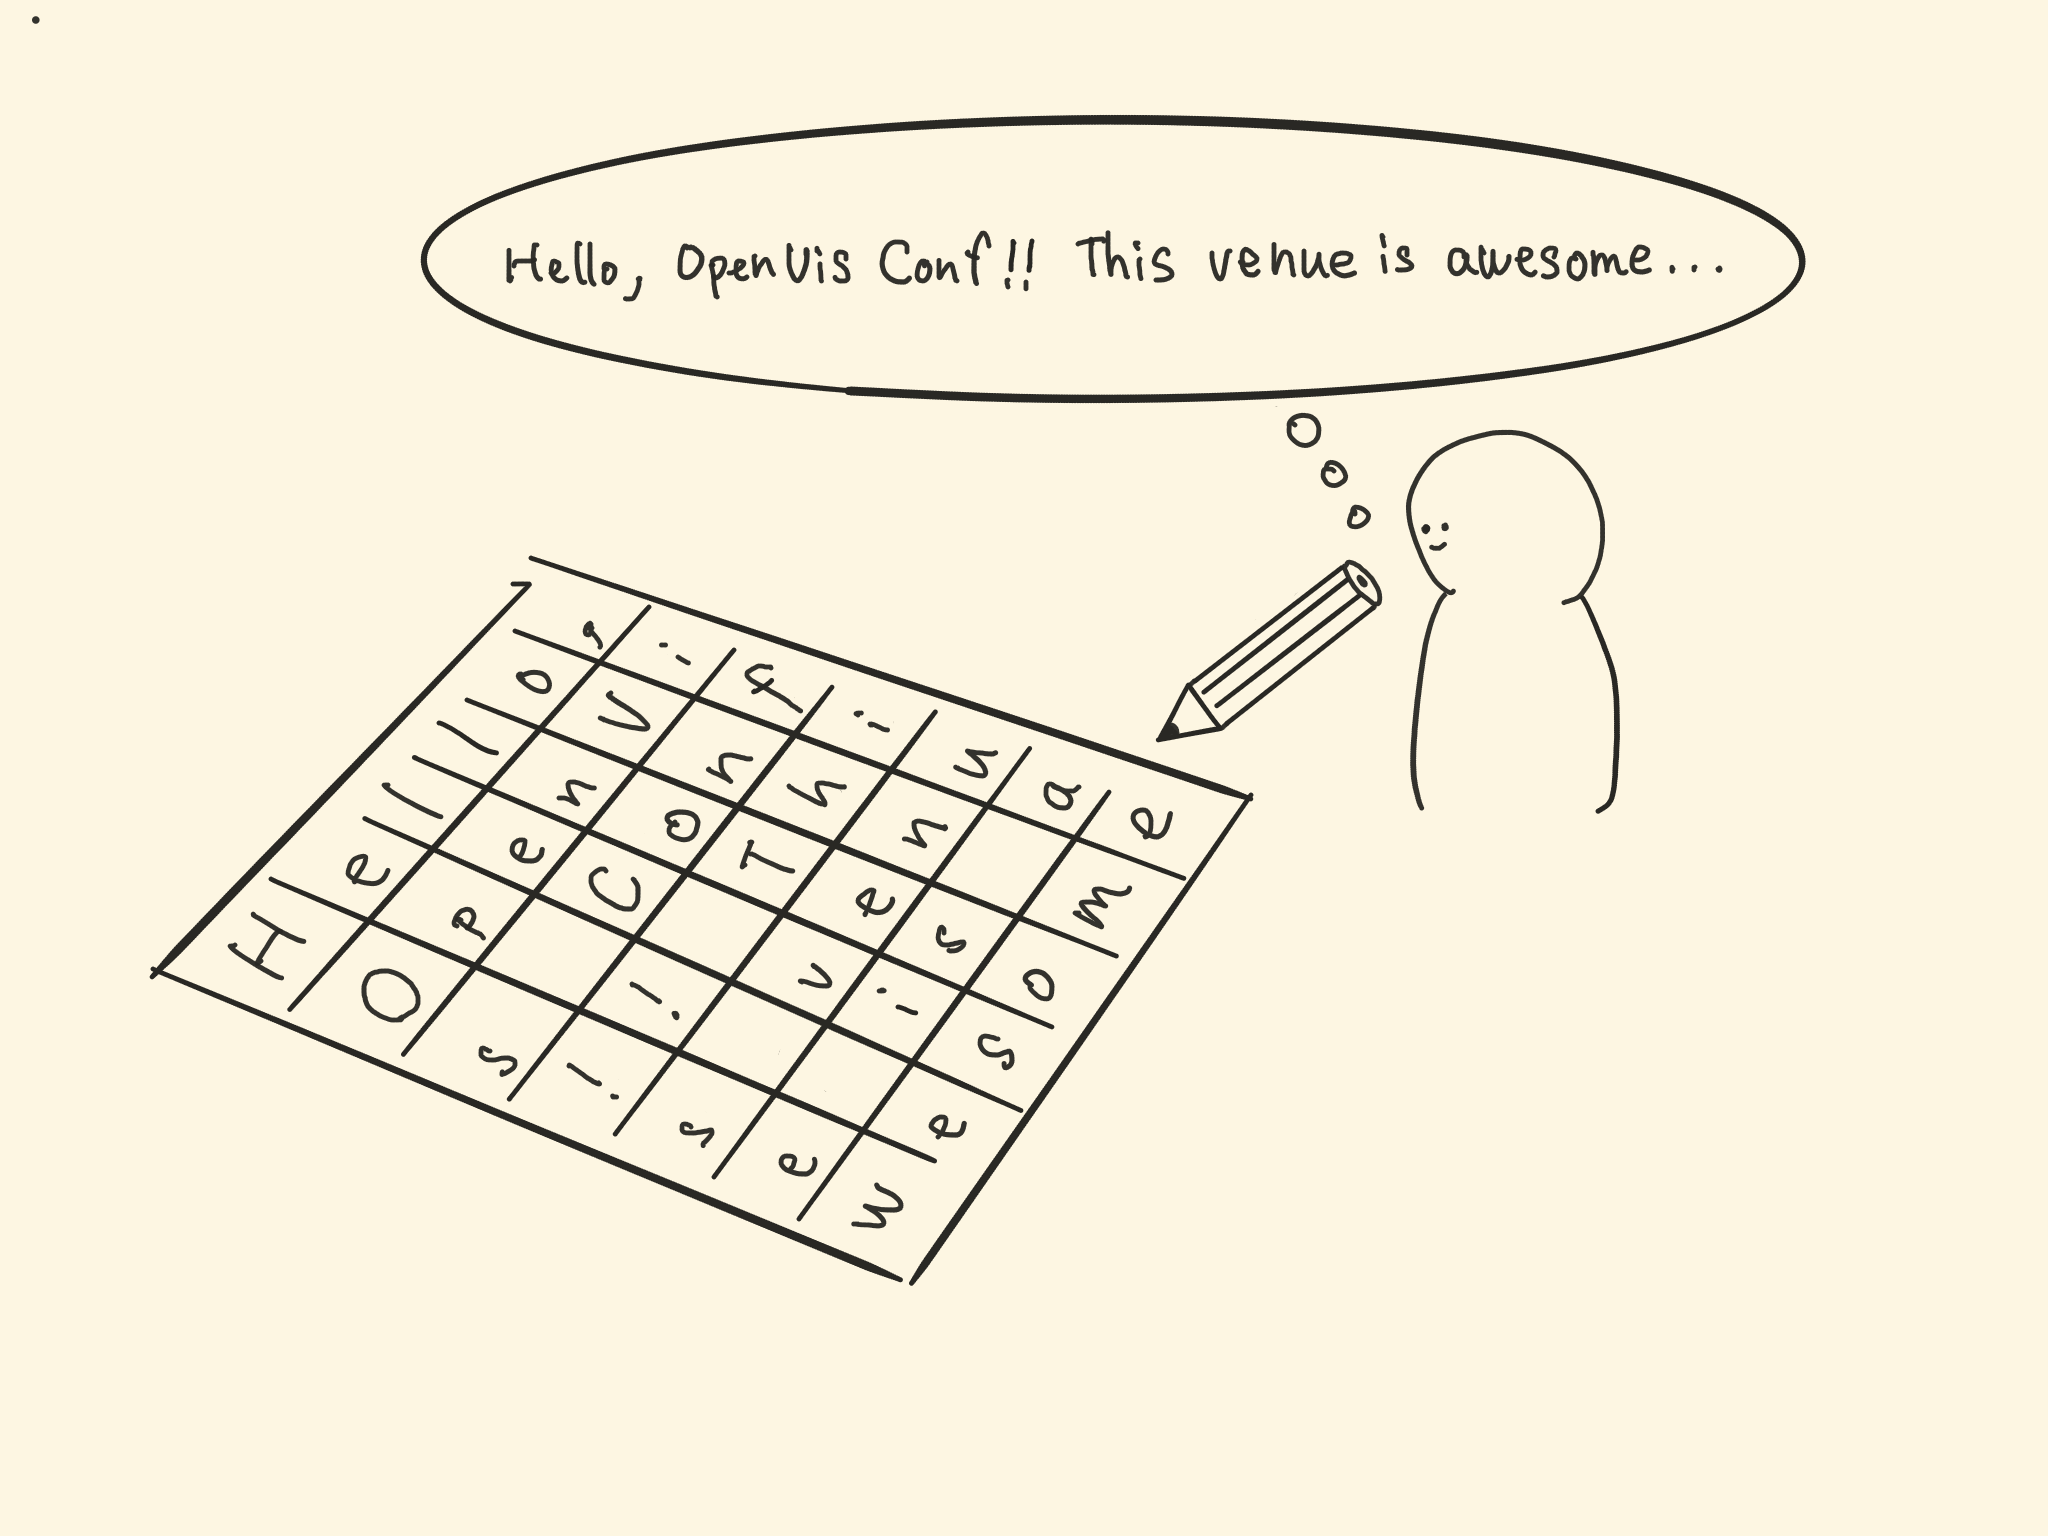 Hello, OpenVis Conf!! This venue is awesome...
H e l l o ,
O p e n V i
s C o n f
! ! T h i
s v e n u
e i s a
w e s o m e